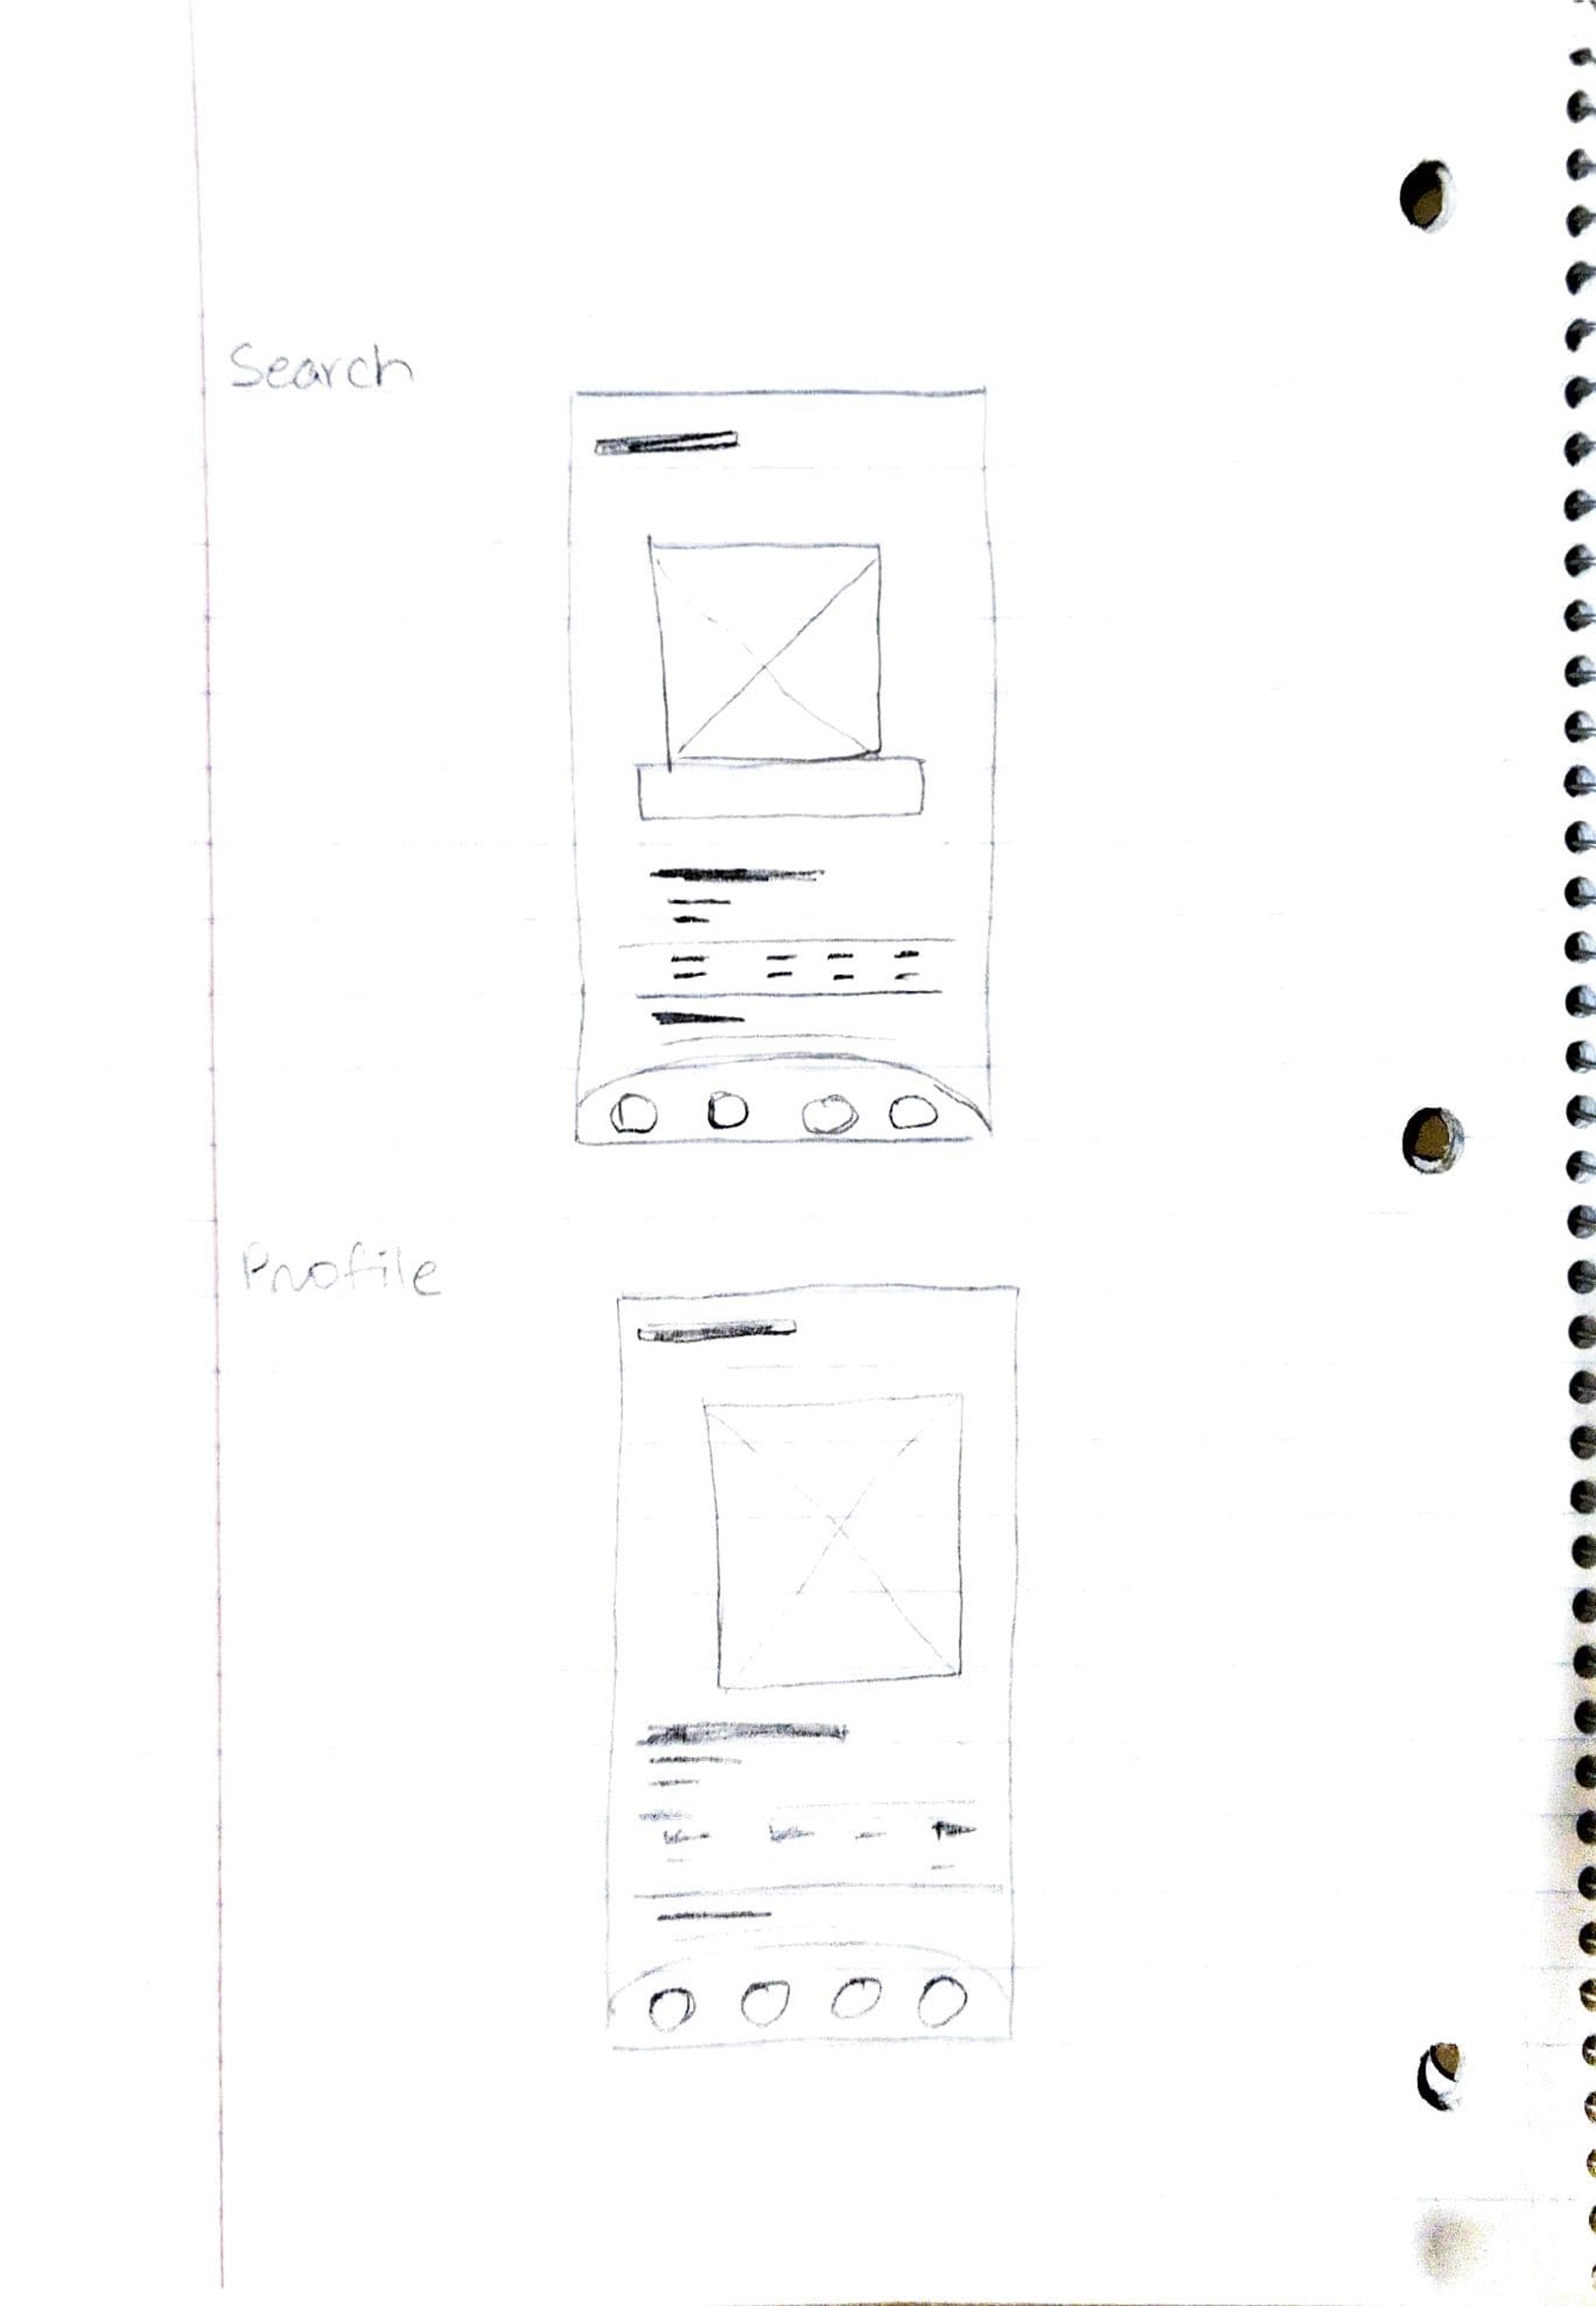 Search
Profile